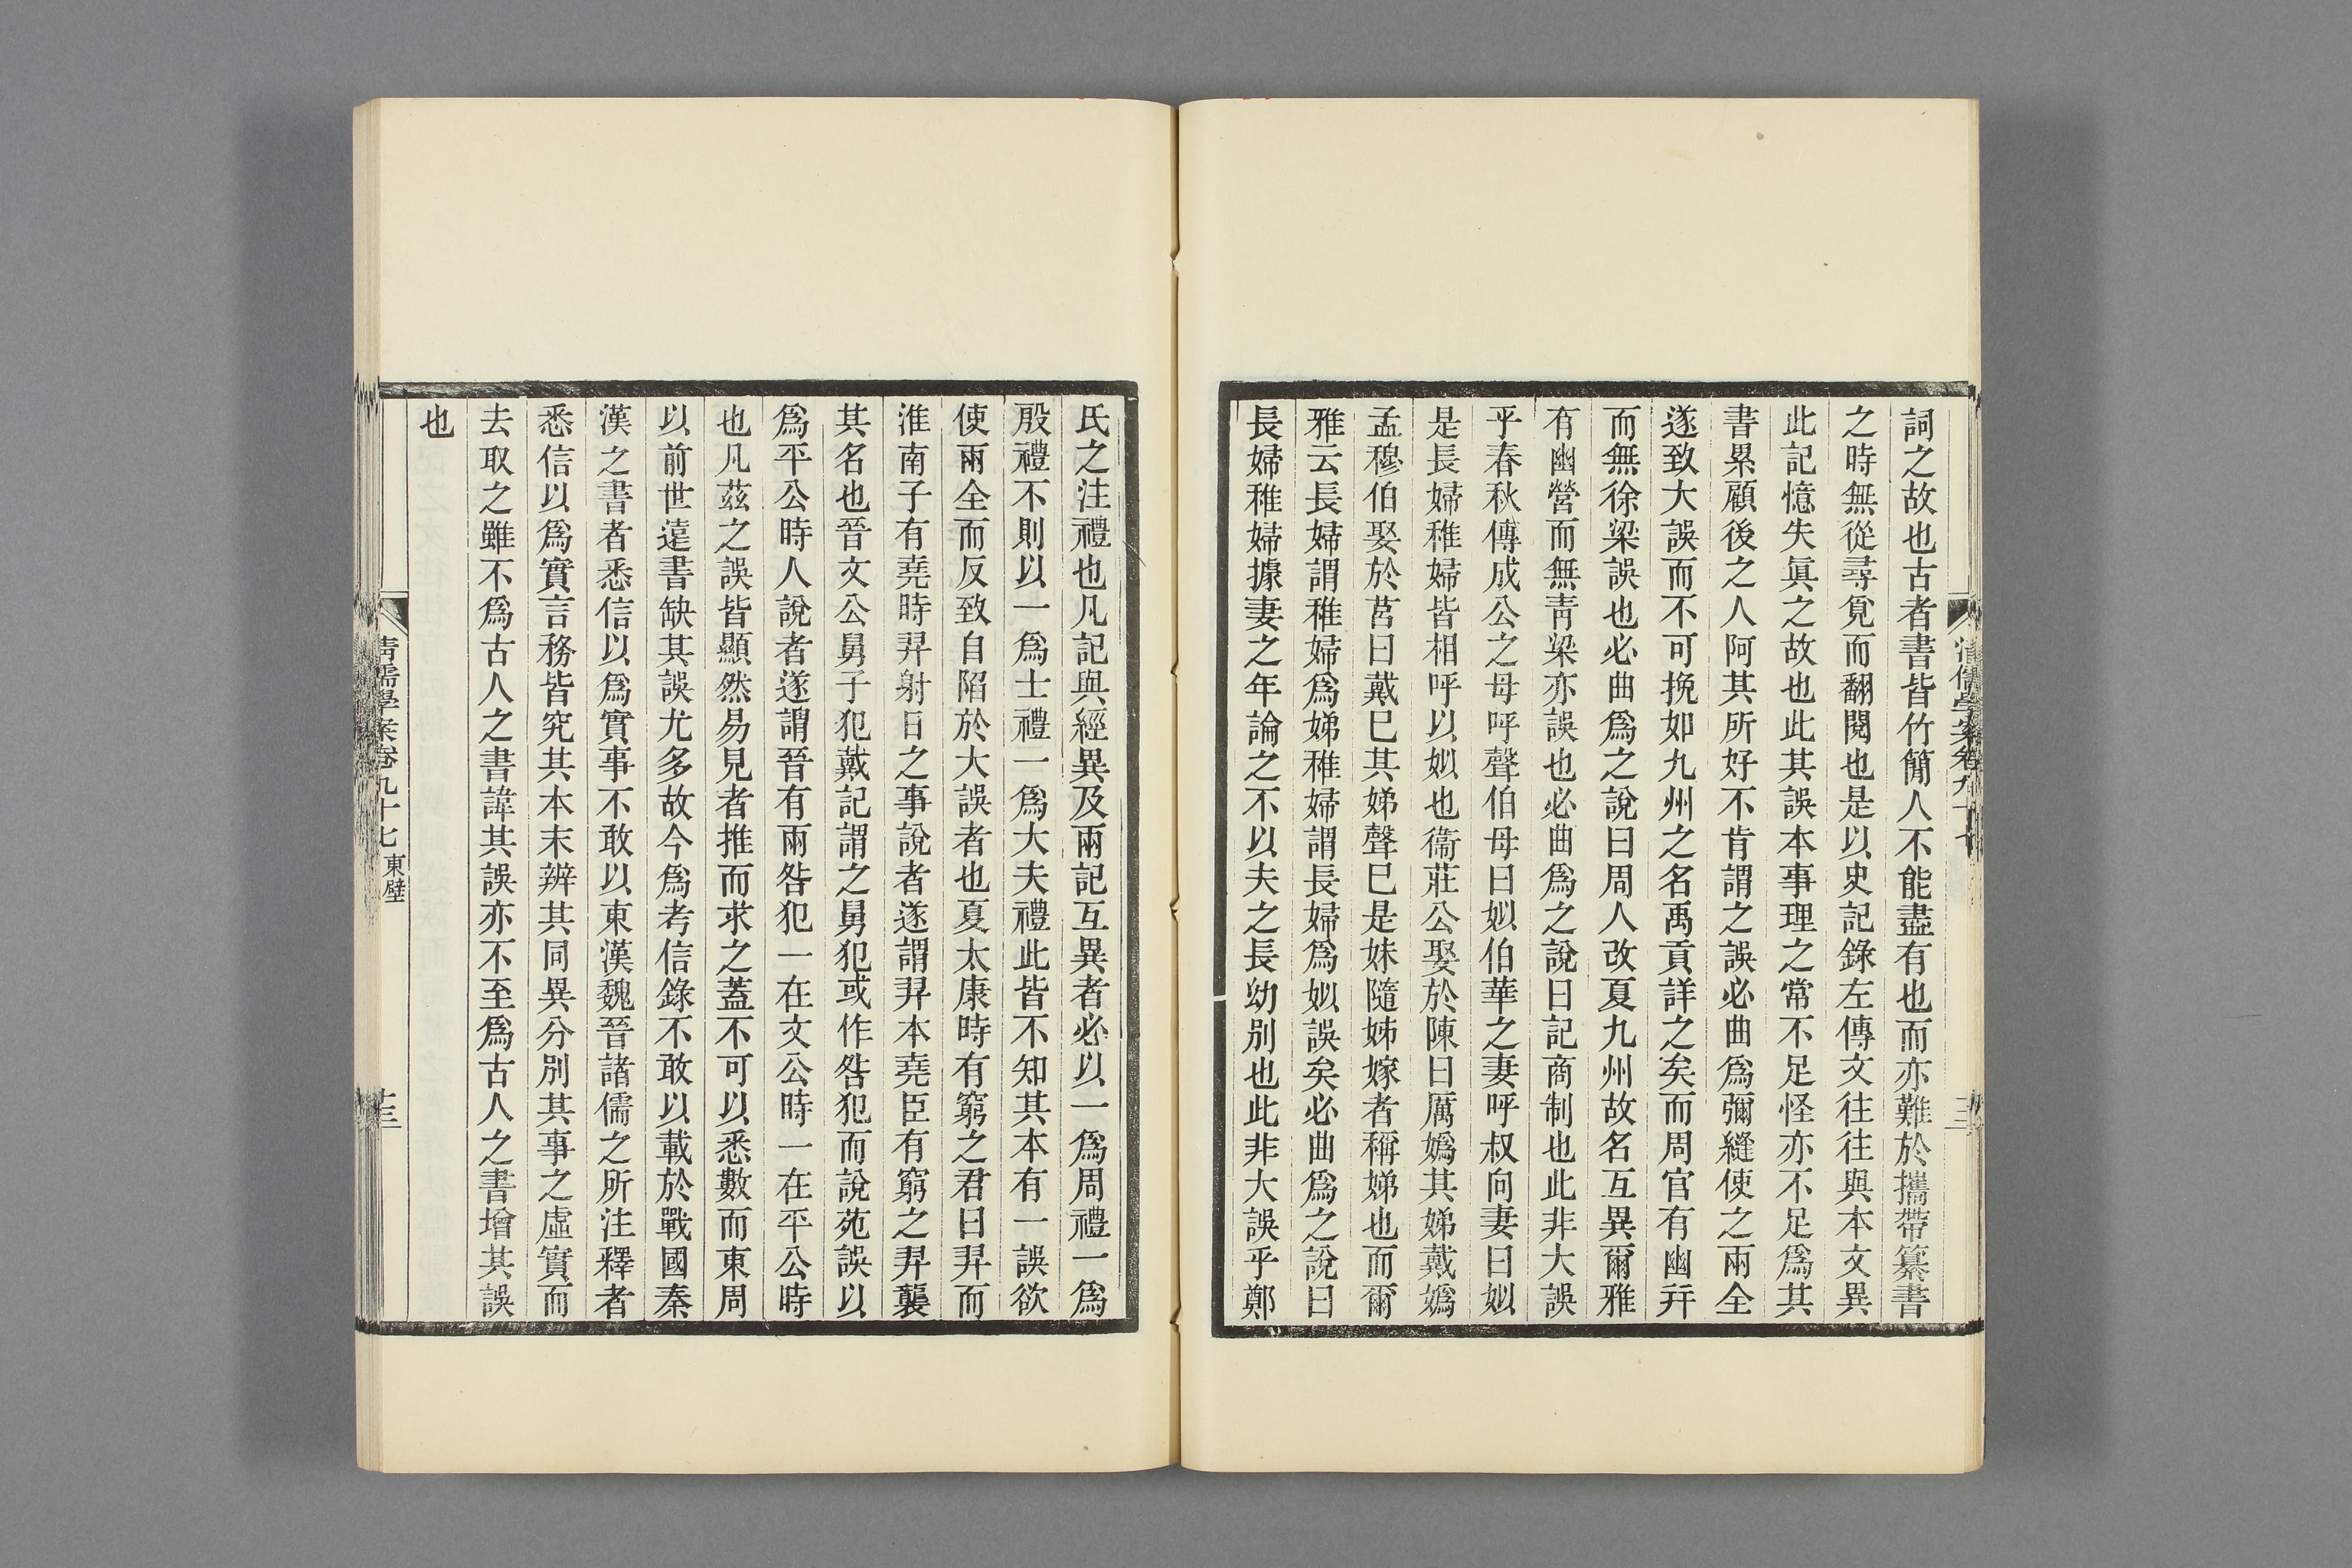 詞之故也古者書皆竹簡人不能盡有也而亦難於攜帶纂書
之時無從尋覓而翻閱也是以史記錄左傳文往往與本文異
此記憶失眞之故也此其誤本事理之常不足怪亦不足爲其
書累顧後之人阿其所好不肯謂之誤必曲爲彌縫使之兩全
遂致大誤而不可挽如九州之名禹貢詳之矣而周官有幽幷
而無徐梁誤也必曲爲之說曰周人改夏九州故名互異爾雅
有幽營而無靑梁亦誤也必曲爲之說曰記商制也此非大誤
乎春秋傳成公之母呼聲伯母曰姒伯華之妻呼叔向妻曰姒
是長婦稚婦皆相呼以姒也衞莊公娶於陳曰厲嬀其娣戴嬀
孟穆伯娶於莒曰戴巳其娣聲巳是妹隨姊嫁者稱娣也而爾
雅云長婦謂稚婦爲娣稚婦謂長婦爲姒誤矣必曲爲之說曰
長婦稚婦據妻之年論之不以夫之長幼別也此非大誤乎鄭
清儒學案卷九十七
三
氏之注禮也凡記與經異及兩記互異者必以一爲周禮一爲
殷禮不則以一爲士禮一爲大夫禮此皆不知其本有一誤欲
使兩全而反致自陷於大誤者也夏太康時有窮之君曰羿而
淮南子有堯時羿射日之事說者遂謂羿本堯臣有窮之羿襲
其名也晉文公舅子犯戴記謂之舅犯或作咎犯而說苑誤以
爲平公時人說者遂謂晉有兩咎犯一在文公時一在平公時
也凡茲之誤皆顯然易見者推而求之蓋不可以悉數而東周
以前世遠書缺其誤尤多故今爲考信錄不敢以載於戰國秦
漢之書者悉信以爲實事不敢以東漢魏晉諸儒之所注釋者
悉信以爲實言務皆究其本末辨其同異分別其事之虛實而
去取之雖不爲古人之書諱其誤亦不至爲古人之書增其誤
也
清儒學案卷九十七 東壁